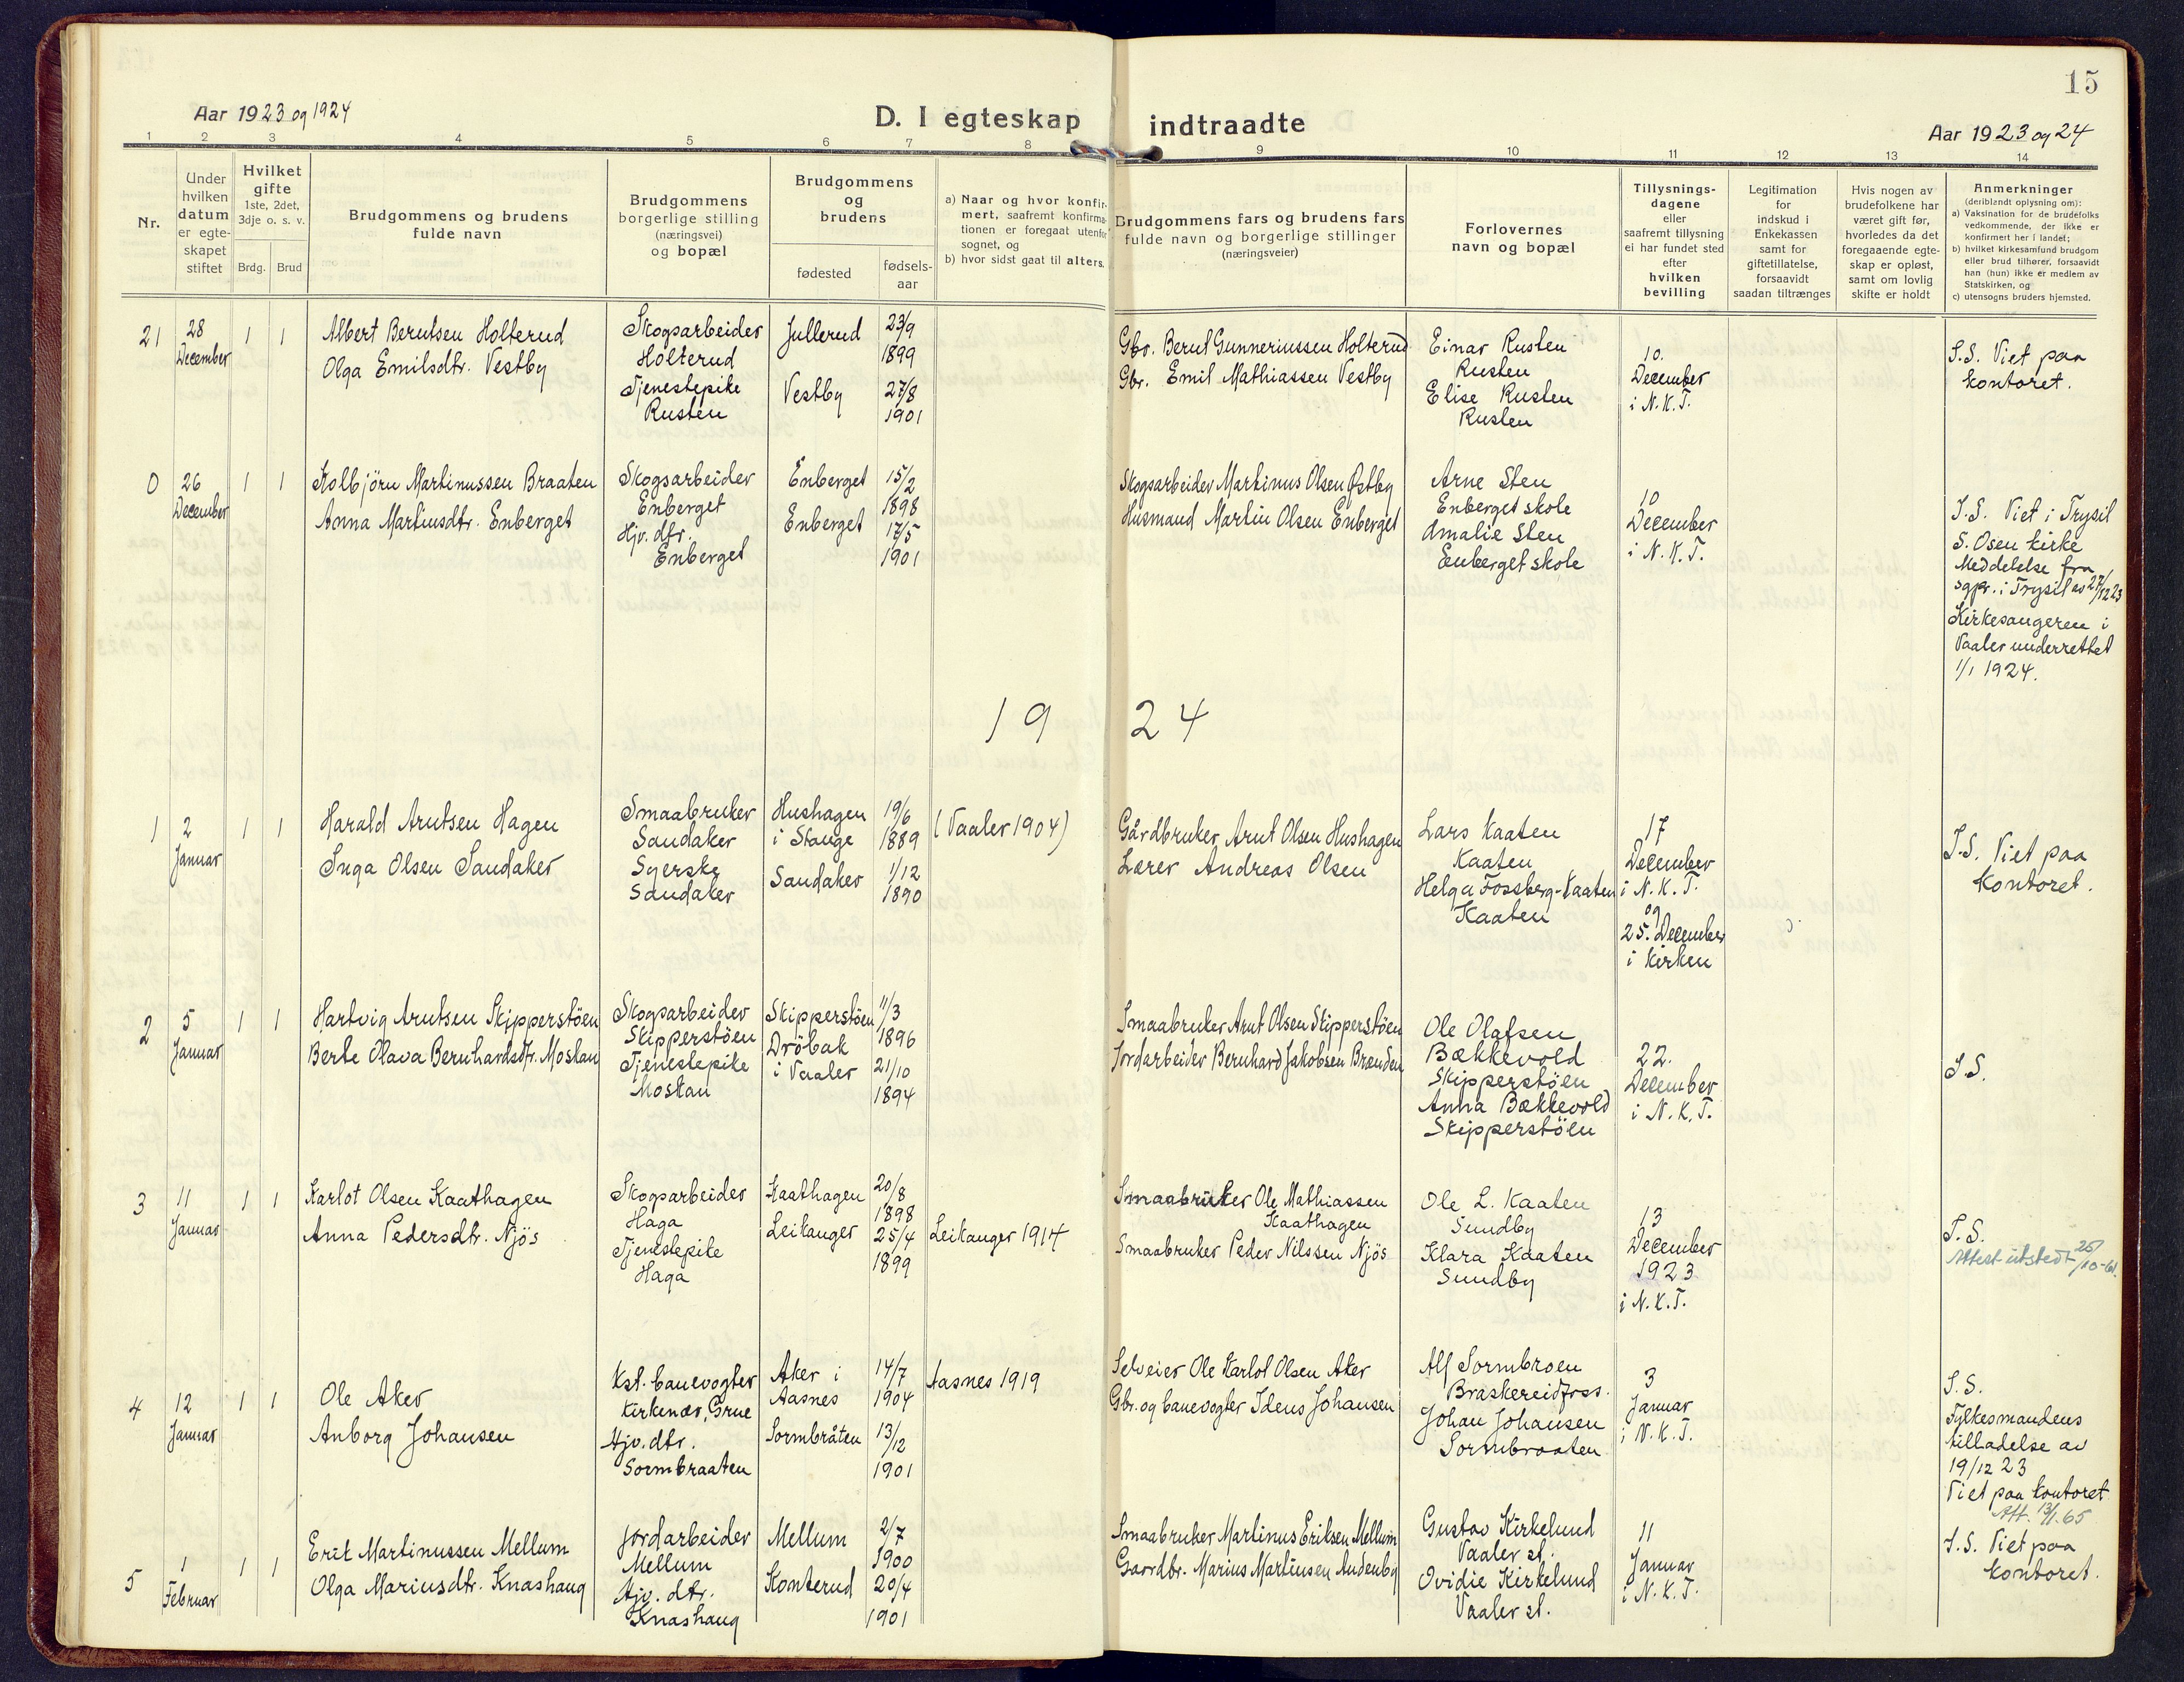 15
Aar 1923 og 1924
D. I egteskap indtraadte
Aar 1923 og 24
1 2 3 4 5 6 7 8 9 10 11 12 13 14
Nr.
Under
hvilken
datum
er egte-
skapet
stiftet
Hvilket
gifte
1ste, 2det,
3dje o. s. v.
Brdg. Brud
Brudgommens og brudens
fulde navn
Brudgommens
borgerlige stilling
(næringsvei)
og bopæl
Brudgommens
og
brudens
fødested
fødsels-
aar
a) Naar og hvor konfir-
mert, saafremt konfirma-
tionen er foregaat utenfor
sognet, og
b) hvor sidst gaat til alters.
Brudgommens fars og brudens fars
fulde navn og borgerlige stillinger
(næringsveier)
Forlovernes
navn og bopæl
Tillysnings-
dagene
eller
saafremt tillysning
ei har fundet sted
efter
hvilken
bevilling
Legitimation
for
indskud i
Enkekassen
samt for
giftetillatelse,
forsaavidt
saadan tiltrænges
Hvis nogen av
brudefolkene har
været gift før,
hvorledes da det
foregaaende egte-
skap er opløst,
samt om lovlig
skifte er holdt
Anmerkninger
(deriblandt oplysning om):
a) Vaksination for de brudefolks
vedkommende, der ikke er
konfirmert her i landet;
b) hvilket kirkesamfund brudgom
eller brud tilhører, forsaavidt
han (hun) ikke er medlem av
Statskirken, og
c) utensogns bruders hjemsted.
21
28
December
1 1
Albert Berntsen Holterud
Olga Emilsdtr. Vestby
Skogsarbeider
Holterud
Tjenestepike
Rusten
Jullerud
Vestby
23/9
1899
27/8
1901
Gbr. Bernt Gunneriussen Holterud
Gbr. Emil Mathiassen Vestby
Einar Rusten
Rusten
Elise Rusten
Rusten
10.
December
i N.K.T.
I.S. Viet paa
kontoret.
0
26
December
1 1
Kolbjörn Martinussen Braaten
Anna Martinsdtr. Enberget
Skogsarbeider
Enberget
Hjv. dtr.
Enberget
Enberget
Enberget
15/2
1898
17/5
1901
Skogsarbeider Martinus Olsen Østby
Husmand Martin Olsen Enberget
Arne Sten
Enberget skole
Amalie Sten
Enberget skole
10
December
i N.K.T.
I.S. Viet i Trysil
S. Osen kirke
Meddelelse fra
sgpr. i Trysil av 27/12 23
Kirkesangeren i
Vaaler underrettet
1/1 1924.
1924
1
2
Januar
1 1
Harald Arntsen Hagen
Inga Olsen Sandaker
Smaabruker
Sandaker
Syerske
Sandaker
Hushagen
i Stange
Sandaker
19/6
1889
1/12
1890
(Vaaler 1904)
Gårdbruker Arnt Olsen Hushagen
Lærer Andreas Olsen
Lars Kaaten
Kaaten
Helga Fossberg-Kaaten
Kaaten
17
December
i N.K.T.
og
25. December
i kirken
I.S. Viet paa
kontoret.
2
5
Januar
1 1
Hartvig Arntsen Skipperstöen
Berte Olava Bernhardsdtr. Mostau
Skogsarbeider
Skipperstöen
Tjenestepike
Mostau
Skipperstöen
Dröbak
i Vaaler
11/3
1896
21/10
1894
Smaabruker Arnt Olsen Skipperstöen
Jordarbeider Bernhard Jakobsen Brenden
Ole Olafsen
Bækkevold
Skipperstöen
Anna Bækkevold
Skipperstöen
22.
December
i N.K.T.
I.S.
3
11
Januar
1 1
Karlot Olsen Kaathagen
Anna Pedersdtr. Njös
Skogsarbeider
Haga
Tjenestepike
Haga
Kaathagen
Leikanger
20/8
1898
25/4
1899
Leikanger 1914
Smaabruker Ole Mathiassen
Kaathagen
Smaabruker Peder Nilssen Njös
Ole L. Kaaten
Sundby
Klara Kaaten
Sundby
13
December
1923
i N.K.T.
I.S.
Attest utstedt 25/10-61.
4
12
Januar
1 1
Ole Aker
Anborg Johansen
Kst. banevogter
Kirkenær, Grue
Hjv. dtr.
Sormbraaten
Aker i
Aasnes
Sormbråten
14/7
1904
13/12
1901
Aasnes 1919
Selveier Ole Karlot Olsen Aker
Gbr. og banevogter Idens Johansen
Alf Sormbroen
Braskereidfoss.
Johan Johansen
Sormbraaten
3
Januar
i N.K.T.
I.S.
Fylkesmandens
tilladelse av
19/12 23
Viet paa kontoret
Att. 13/1.65
5
1
Februar
1 1
Erik Martinussen Mellum
Olga Mariusdtr. Knashaug
Jordarbeider
Mellum
Hjv. dtr.
Knashaug
Mellum
Konterud
2/7
1900
20/4
1901
Smaabruker Martinus Eriksen Mellum
Gaardbr. Marius Martinsen Audenby
Gustav Kirkelund
Vaaler st.
Ovidie Kirkelund
Vaaler st.
11
Januar
i N.K.T.
I.S. Viet paa
kontoret.